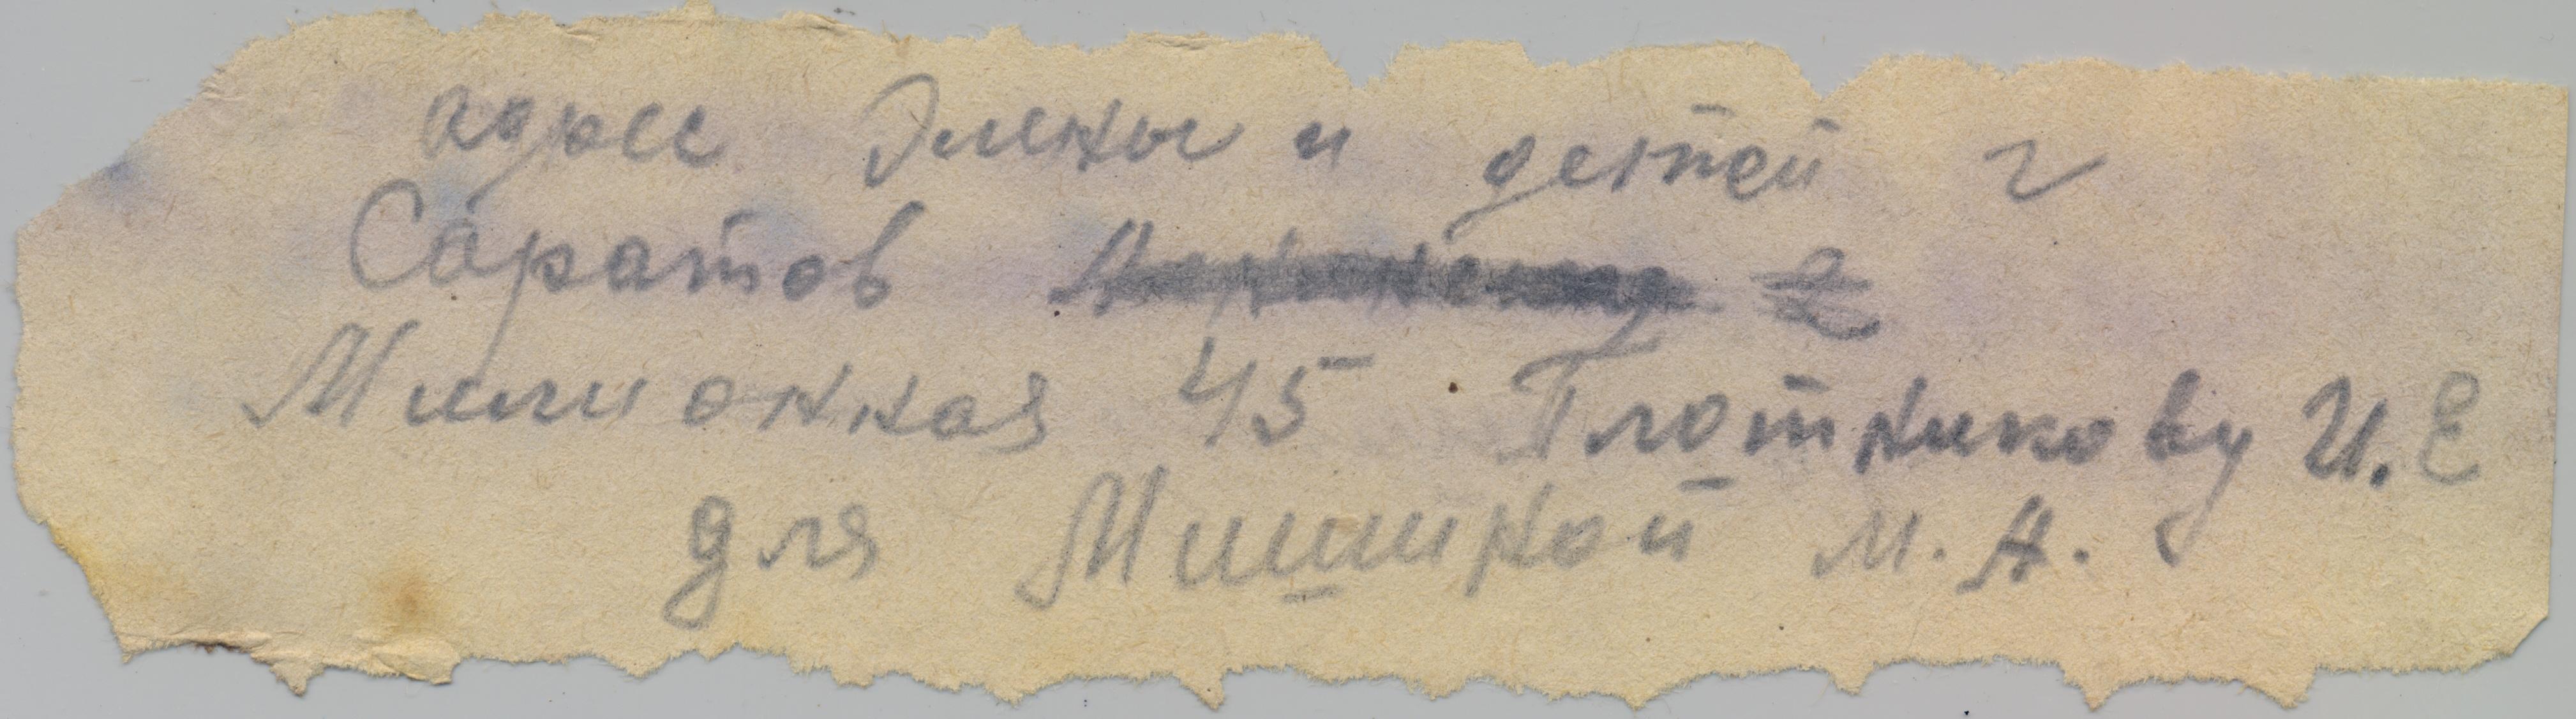 адрес Элены и детей г
Саратов
Милионная 45 Плотникову И. Е
для Мишиной М. А.